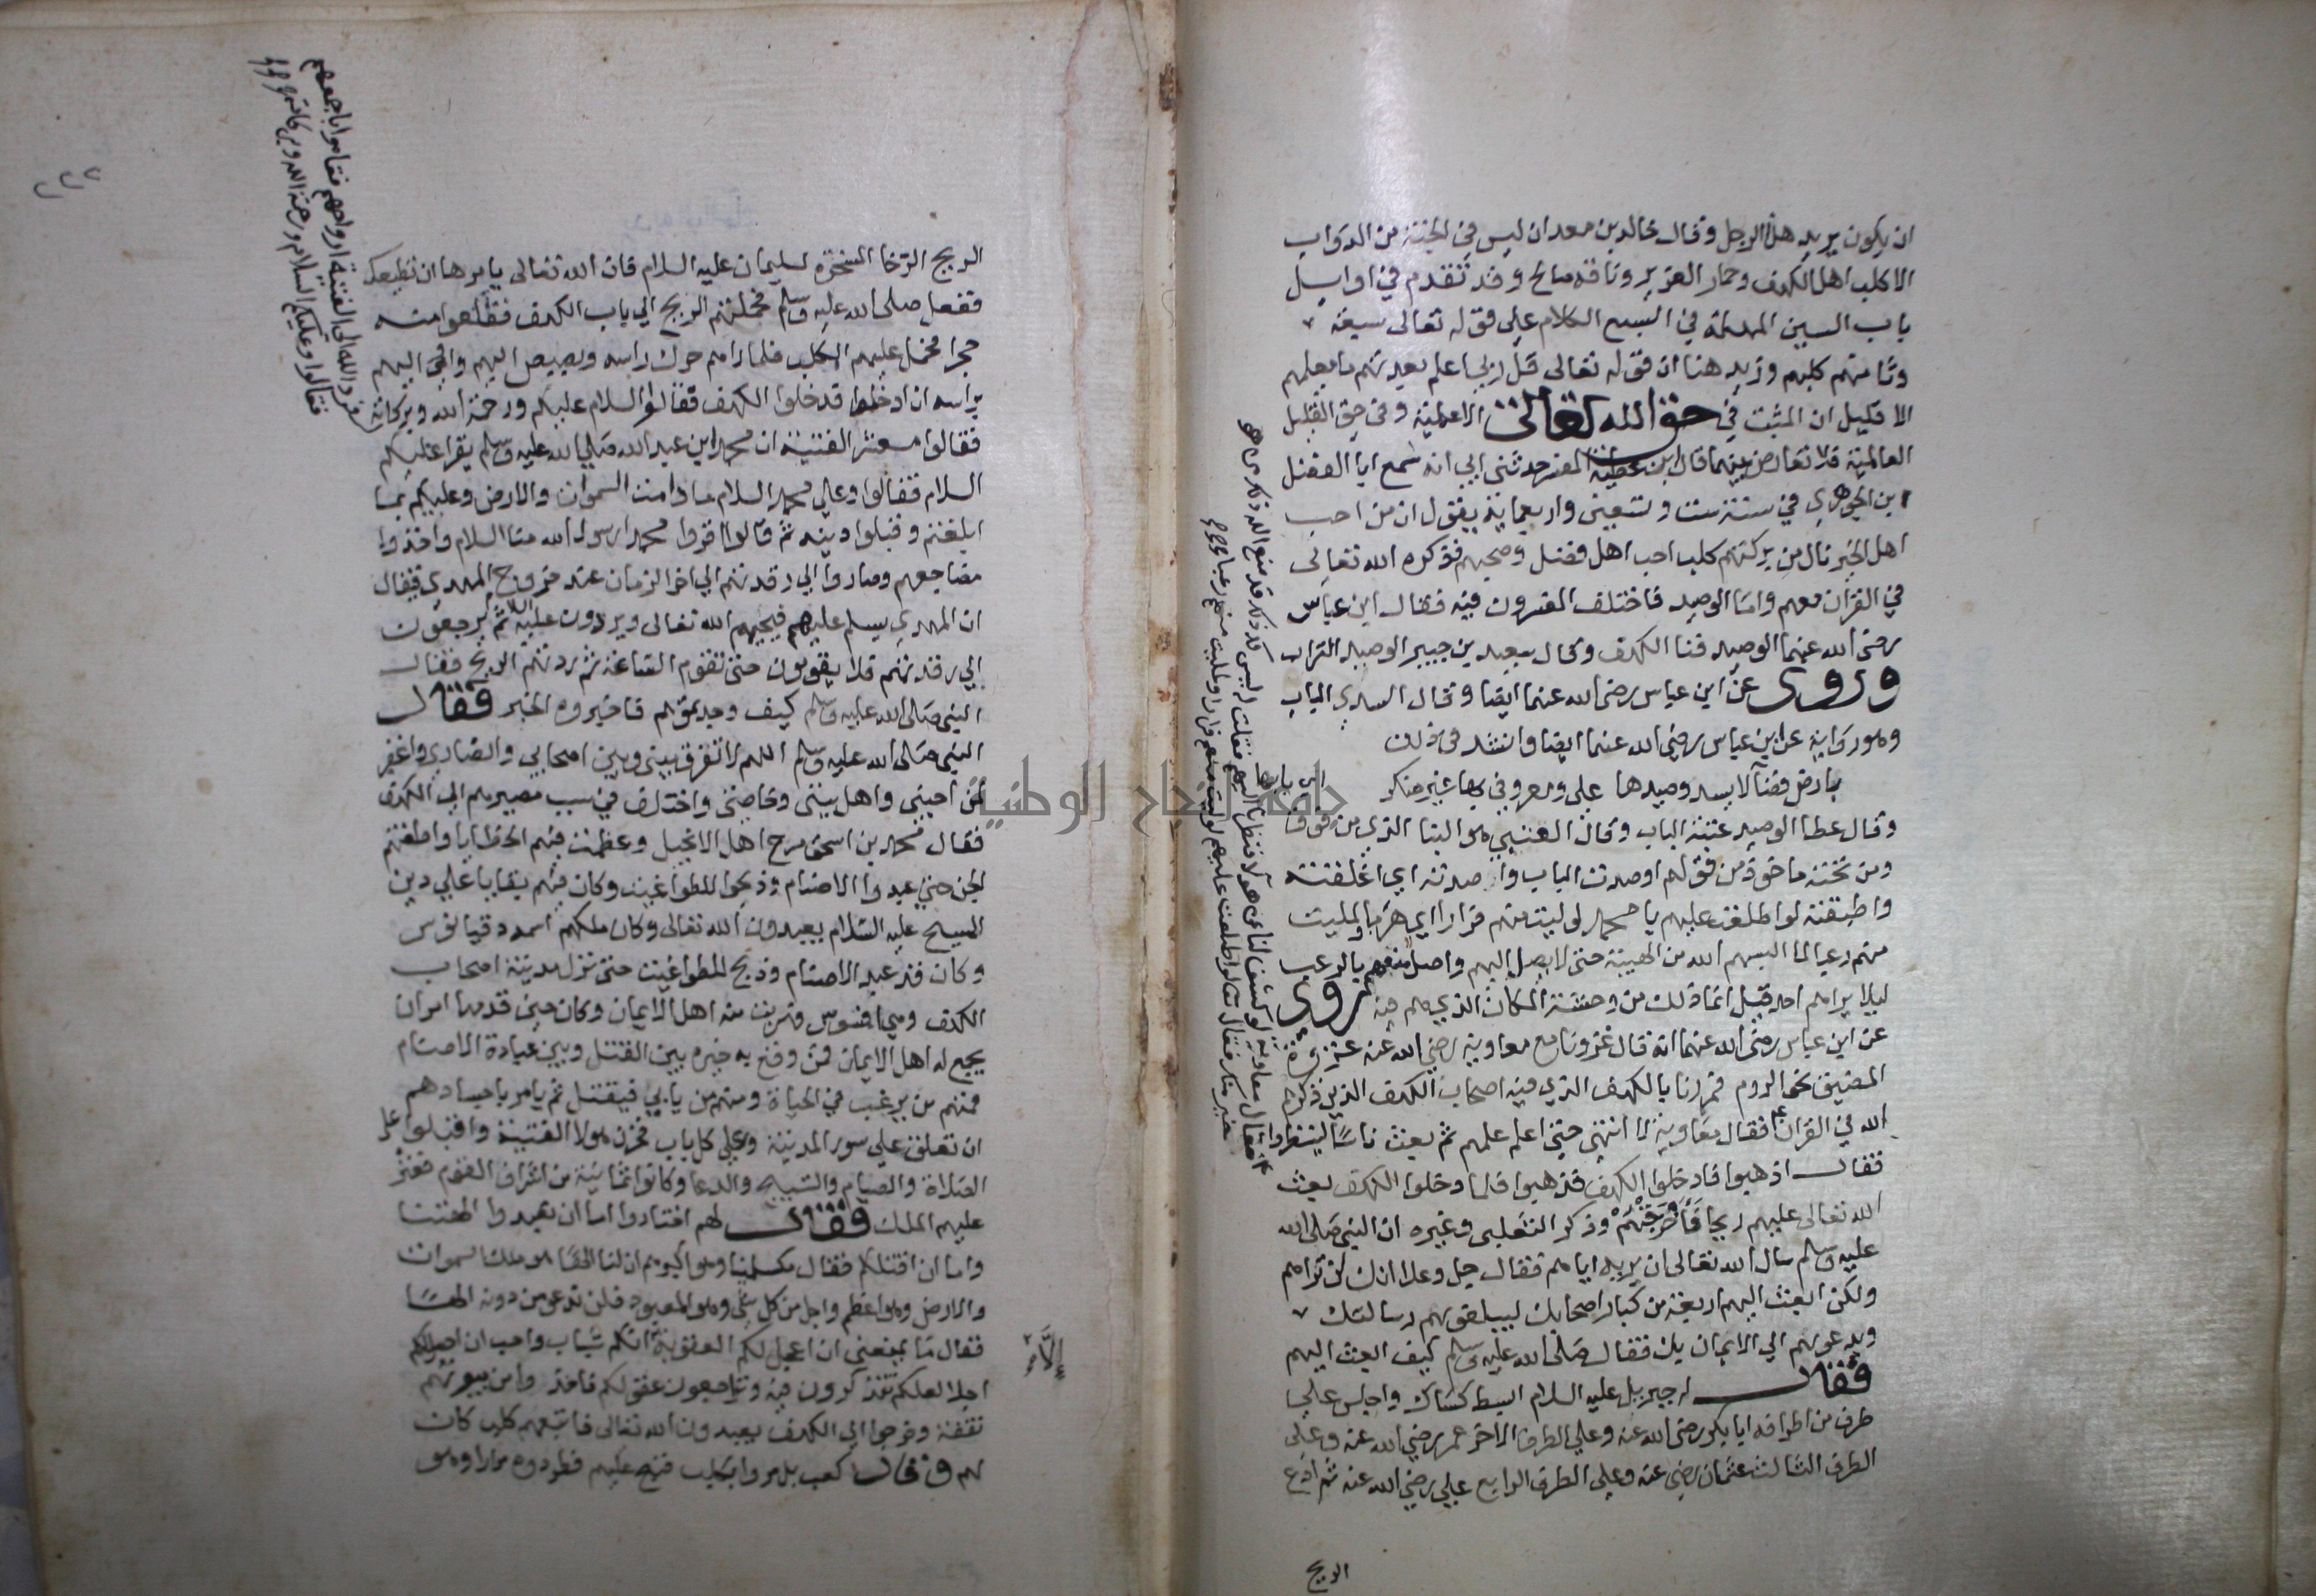 ان يكون يريد هذا الرجل وقال خالد بن معدان ليس في الجنة من الدواب
الا كلب اهل الكهف وحمار العزير وناقة صالح وقد تقدم في اوايل
باب السين المهملة في السبع الكلام على قوله تعالى سبعة
وثامنهم كلبهم ونريد هنا ان قوله تعالى قل ربي اعلم بعدتهم ما يعلمهم
الا قليل ان المثبت في حق الله تعالى الاعلمية وفي حق القليل
العالمية فلا تعارض بينهما قال ابن عطية المفسر حدثني ابي انه سمع ابا الفضل
ابن الجوهري في سنة ست وتسعين واربعماية يقول ان من احب
اهل الخير نال من بركتهم كلب احب اهل فضل وصحبهم فذكره الله تعالى
في القران معهم واما الوصيد فاختلف المفسرون فيه فقال ابن عباس
رضي الله عنهما الوصيد فنا الكهف وقال سعيد بن جبير الوصيد التراب
وروى عن ابن عباس رضي الله عنهما ايضا وقال السدي الباب
وهو رواية عن ابن عباس رضي الله عنهما ايضا وانشد في ذلك
بارض فضآ لا يسد وصيدها على ومعروفي بها غير منكر
اي بابها
وقال عطا الوصيد عتبة الباب وقال العتبي هو البنا الذي من فوق
ومن تحته ماخوذ من قولهم اوصدت الباب وآصدته اي اغلقته
واطبقته لو اطلعت عليهم يا محمد لوليت منهم فرارا اي هربا ولمليت
منهم رعبا لما البسهم الله من الهيبة حتى لا يصل اليهم واصل منعهم بالرعب
ليلا يراهم احد وقيل انما ذلك من وحشة المكان الذي هم فيه وروى
عن ابن عباس رضي الله عنهما انه قال غزونا مع معاوية رضي الله عنه غزوة
المضيق نحو الروم فمررنا بالكهف الذي فيه اصحاب الكهف الذين ذكرهم
الله في القران فقال معاوية لا انتهي حتى اعلم علمهم ثم بعث ناسا لينظروا
فقال اذهبوا فادخلوا الكهف فذهبوا فلما دخلوا الكهف بعث
الله تعالى عليهم ريحا فاخرجتهم وذكر الثعلبي وغيره ان النبي صلى الله
عليه وسلم سال الله تعالى ان يريه اياهم فقال جل وعلا انك لن تراهم
ولكن ابعث اليهم اربعة من كبار اصحابك ليبلغوهم رسالتك
ويدعوهم الي الايمان بك فقال صلى الله عليه وسلم كيف ابعث اليهم
فقال له جبريل عليه السلام ابسط كساك واجلس على
طرف من اطرافه ابا بكر رضي الله عنه وعلي الطرف الاخر عمر رضي الله عنه وعلى
الطرف الثالث عثمان رضي عنه وعلي الطرف الرابع علي رضي الله عنه ثم ادع
الريح
فقال معاوية لو كشف لنا عن هولآ فنظرنا اليهم فقلت له ليس لك ذلك قد منع الله ذلك من هو
خير منك فقال تعالى لو اطلعت عليهم لوليت منهم فرارا ولمليت منهم رعبا
جامعة النجاح الوطنية
الريح الرخا المسخرة لسليمان عليه السلام فان الله تعالى يامرها ان تطيعك
ففعل صلى الله عليه وسلم فحملتهم الريح الي باب الكهف فقلعوا منه
حجرا فحمل عليهم الكلب فلما راهم حرك راسه وبصبص اليهم واومى اليهم
براسه ان ادخلوا فدخلوا الكهف فقالوا السلام عليكم ورحمة الله وبركاته
فقالوا معشر الفتية ان محمدا ابن عبد الله صلى الله عليه وسلم يقرا عليكم
السلام فقالوا وعلي محمد السلام ما دامت السموات والارض وعليكم بما
ابلغتم وقبلوا دينه ثم قالوا اقروا محمدا رسول الله منا السلام واخذوا
مضاجعهم وصاروا الي رقدتهم الي اخر الزمان عند خروج المهدي فيقال
ان المهدي يسلم عليهم فيحييهم الله تعالى ويردون عليه السلام ثم يرجعون
الي رقدتهم فلا يقومون حتى تقوم الساعة ثم ردتهم الريح فقال
النبي صلى الله عليه وسلم كيف وجدتموهم فاخبروه الخبر فقال
النبي صلى الله عليه وسلم اللهم لا تفرق بيني وبين اصحابي وانصاري واغفر
لمن احبني واهل بيتي وخاصتي واختلف في سبب مصيرهم الي الكهف
فقال محمد بن اسحق مرج اهل الانجيل وعظمت فيهم الخطايا واطغتهم
الجن حتي عبدوا الاصنام وذبحوا للطواغيت وكان فيهم بقايا علي دين
المسيح عليه السلام يعبدون الله تعالى وكان ملكهم اسمه دقيانوس
وكان قد عبد الاصنام وذبح للطواغيت حتى نزل مدينة اصحاب
الكهف وهي افسوس فهربت منه اهل الايمان وكان حين قدمها امران
يجمع له اهل الايمان فمن وقع به خيره بين القتل وبين عبادة الاصنام
فمنهم من يرغب في الحياة ومنهم من يابي فيقتل ثم يامر باجسادهم
ان تعلق علي سور المدينة وعلي كل باب فحزن هولا الفتية واقبلوا على
الصلاة والصيام والتسبيح والدعا وكانوا ثمانية من اشراف القوم فعثر
عليهم الملك فقال لهم اختاروا اما ان تعبدوا الهتنا
واما ان اقتلكم فقال مكسلمينا وهو اكبرهم ان لنا الها هو ملك السموات
والارض وهو اعظم واجل من كل شي وهو المعبود فلن ندعو من دونه الها
فقال ما يمنعني ان اعجل لكم العقوبة انكم شباب واحب ان اجعل لكم
إلا
اجلا لعلكم تتذكرون فيه وتراجعون عقولكم فاخذوا من بيوتهم
نفقة وخرجوا الي الكهف يعبدون الله تعالى فاتبعهم كلب كان
لهم وقال كعب بل مروا بكلب فنبح عليهم فطردوه مرارا وهو
فرد الله الى الفتية ارواحهم فقاموا باجمعهم
فقالوا وعليكم السلام ورحمة الله وبركاته